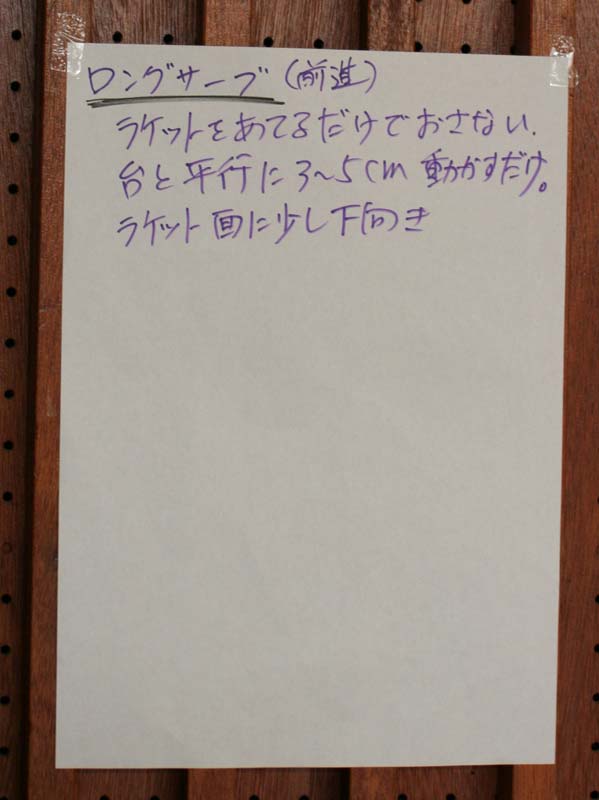 ロングサーブ(前進)
ラケットをあてるだけでおさない.
台と平行に3~5cm動かすだけ。
ラケット面に少し下向き